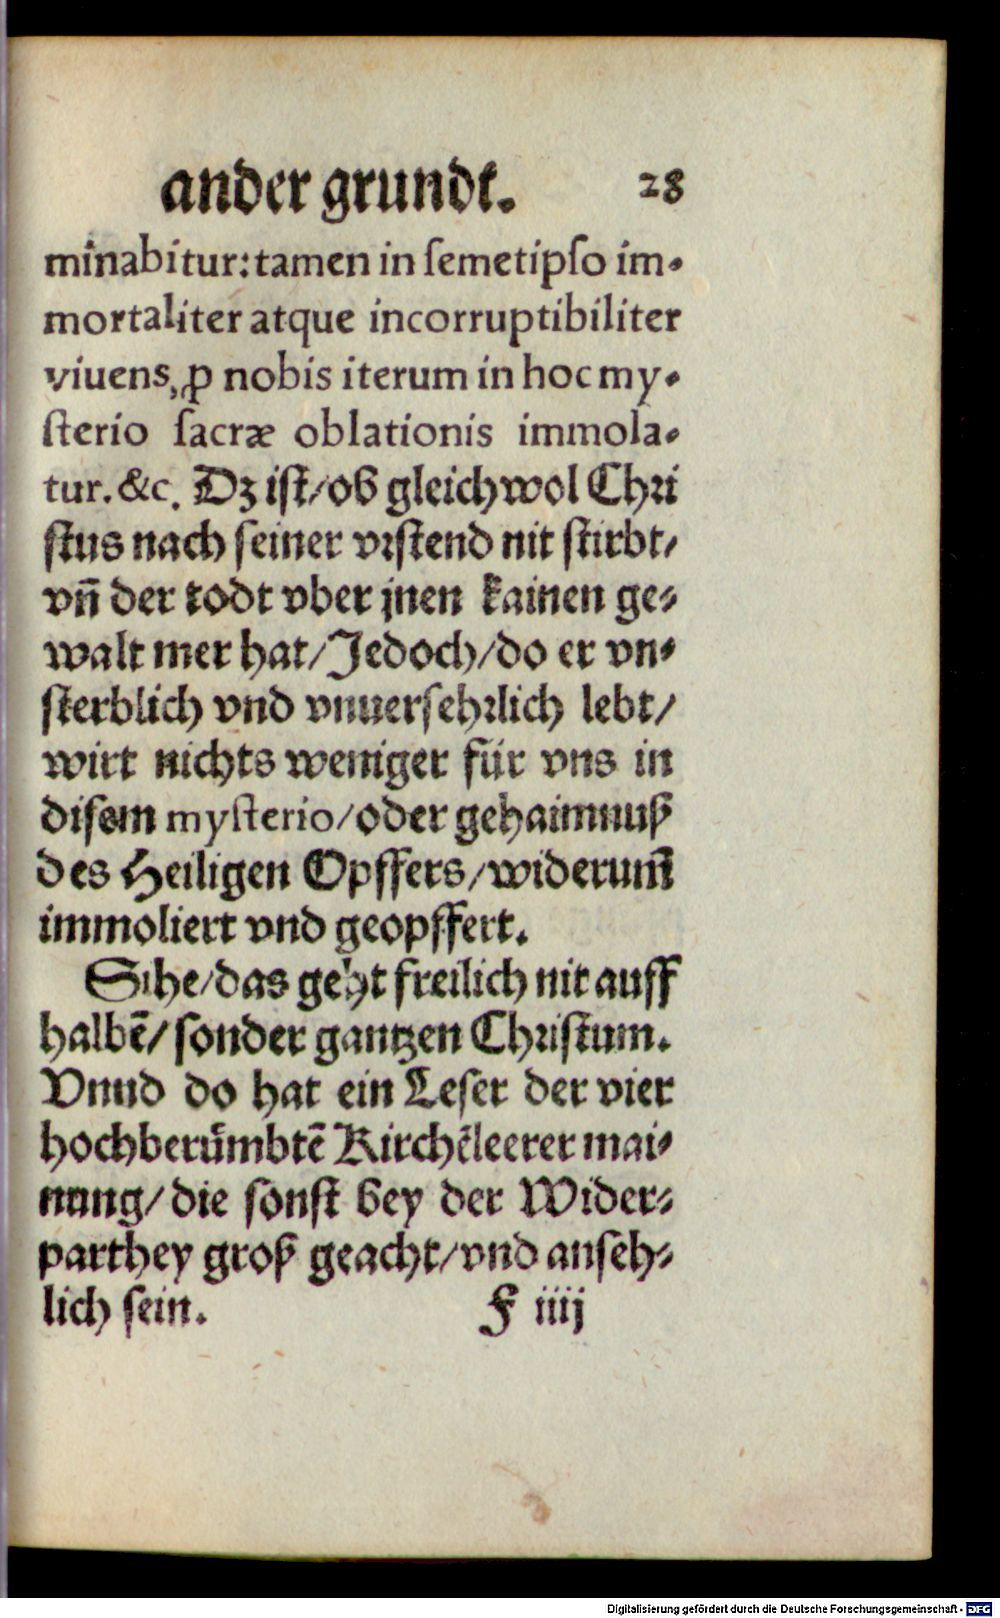 ander grundt. 28
minabitur: tamen in ſemetipſo im-
mortaliter atque incorruptibiliter
viuens, ꝓ nobis iterum in hoc my-
ſterio ſacræ oblationis immola-
tur. &c. Dz iſt/ob gleichwol Chri
ſtus nach ſeiner vrſtend nit ſtirbt/
vn̄ der todt vber jnen kainen ge-
walt mer hat/Jedoch/do er vn-
ſterblich vnd vnuerſehrlich lebt/
wirt nichts weniger für vns in
diſem myſterio/oder gehaimnuß
des Heiligen Opffers/widerum̄
immoliert vnd geopffert.
Sihe/das geht freilich nit auff
halbē/ſonder gantzen Chriſtum.
Vnnd do hat ein Leſer der vier
hochberümbtē Kirchēleerer mai-
nung/die ſonſt bey der Wider-
parthey groß geacht/vnd anſeh-
lich ſein. F iiij
Digitalisierung gefördert durch die Deutsche Forschungsgemeinschaft - DFG